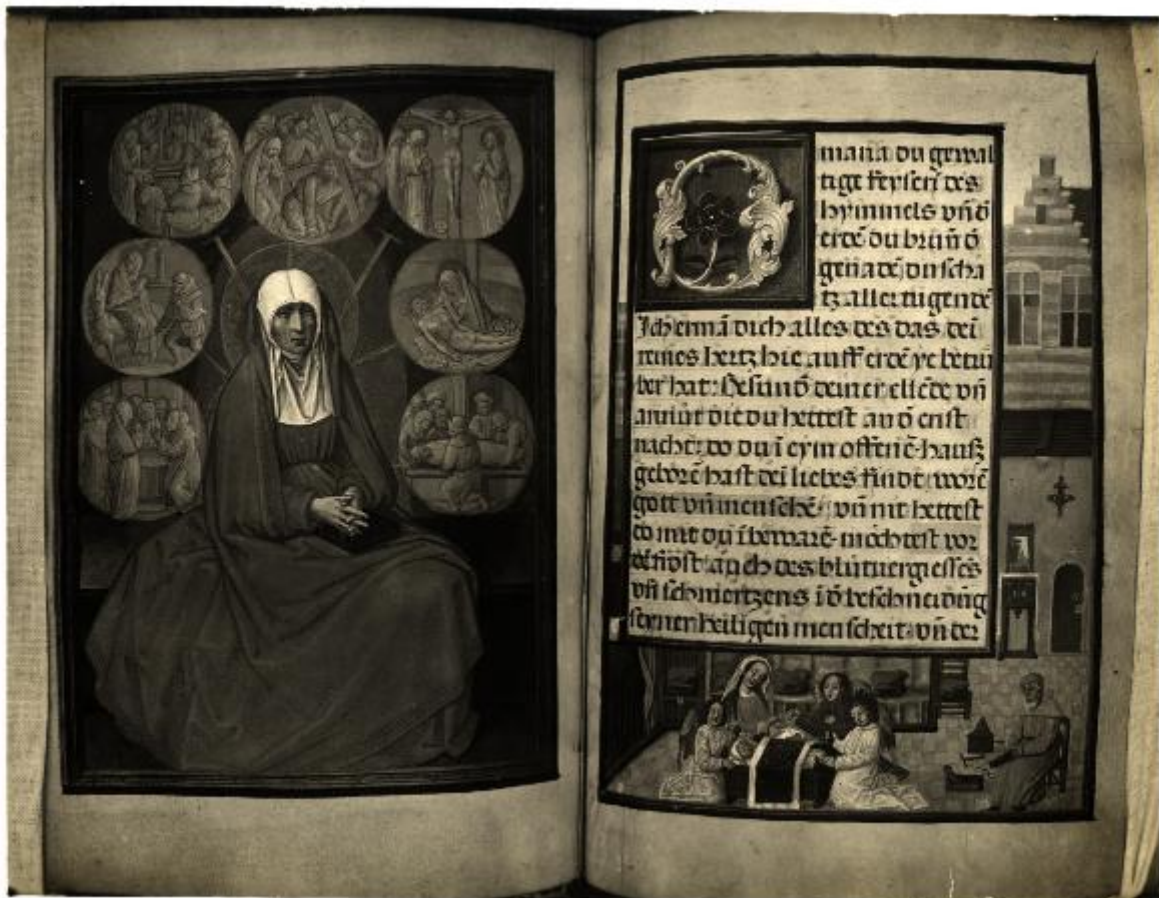 O maria du gewal
tige keyseri des
hymmels vñ d̄
erdē du brun d̄
genadē du scha
tz aller tugendē
Ich ermā dich alles des das dei
reines hertz hie auff erdē ye betrü
bet hat: Besund̄ deiner ellēde vñ
armūt die du hettest an d̄ crist
nacht: do du ī eym offenē hauß
geborē hast dei liebes kindt worē
gott vñ menschē: vñ nit hettest
do mit du ī bewarē möchtest vor
dē frost: auch des blutuergiessēs
vñ schmertzens ī d̄ beschneydūg
seyner heiligen menscheit: vñ der